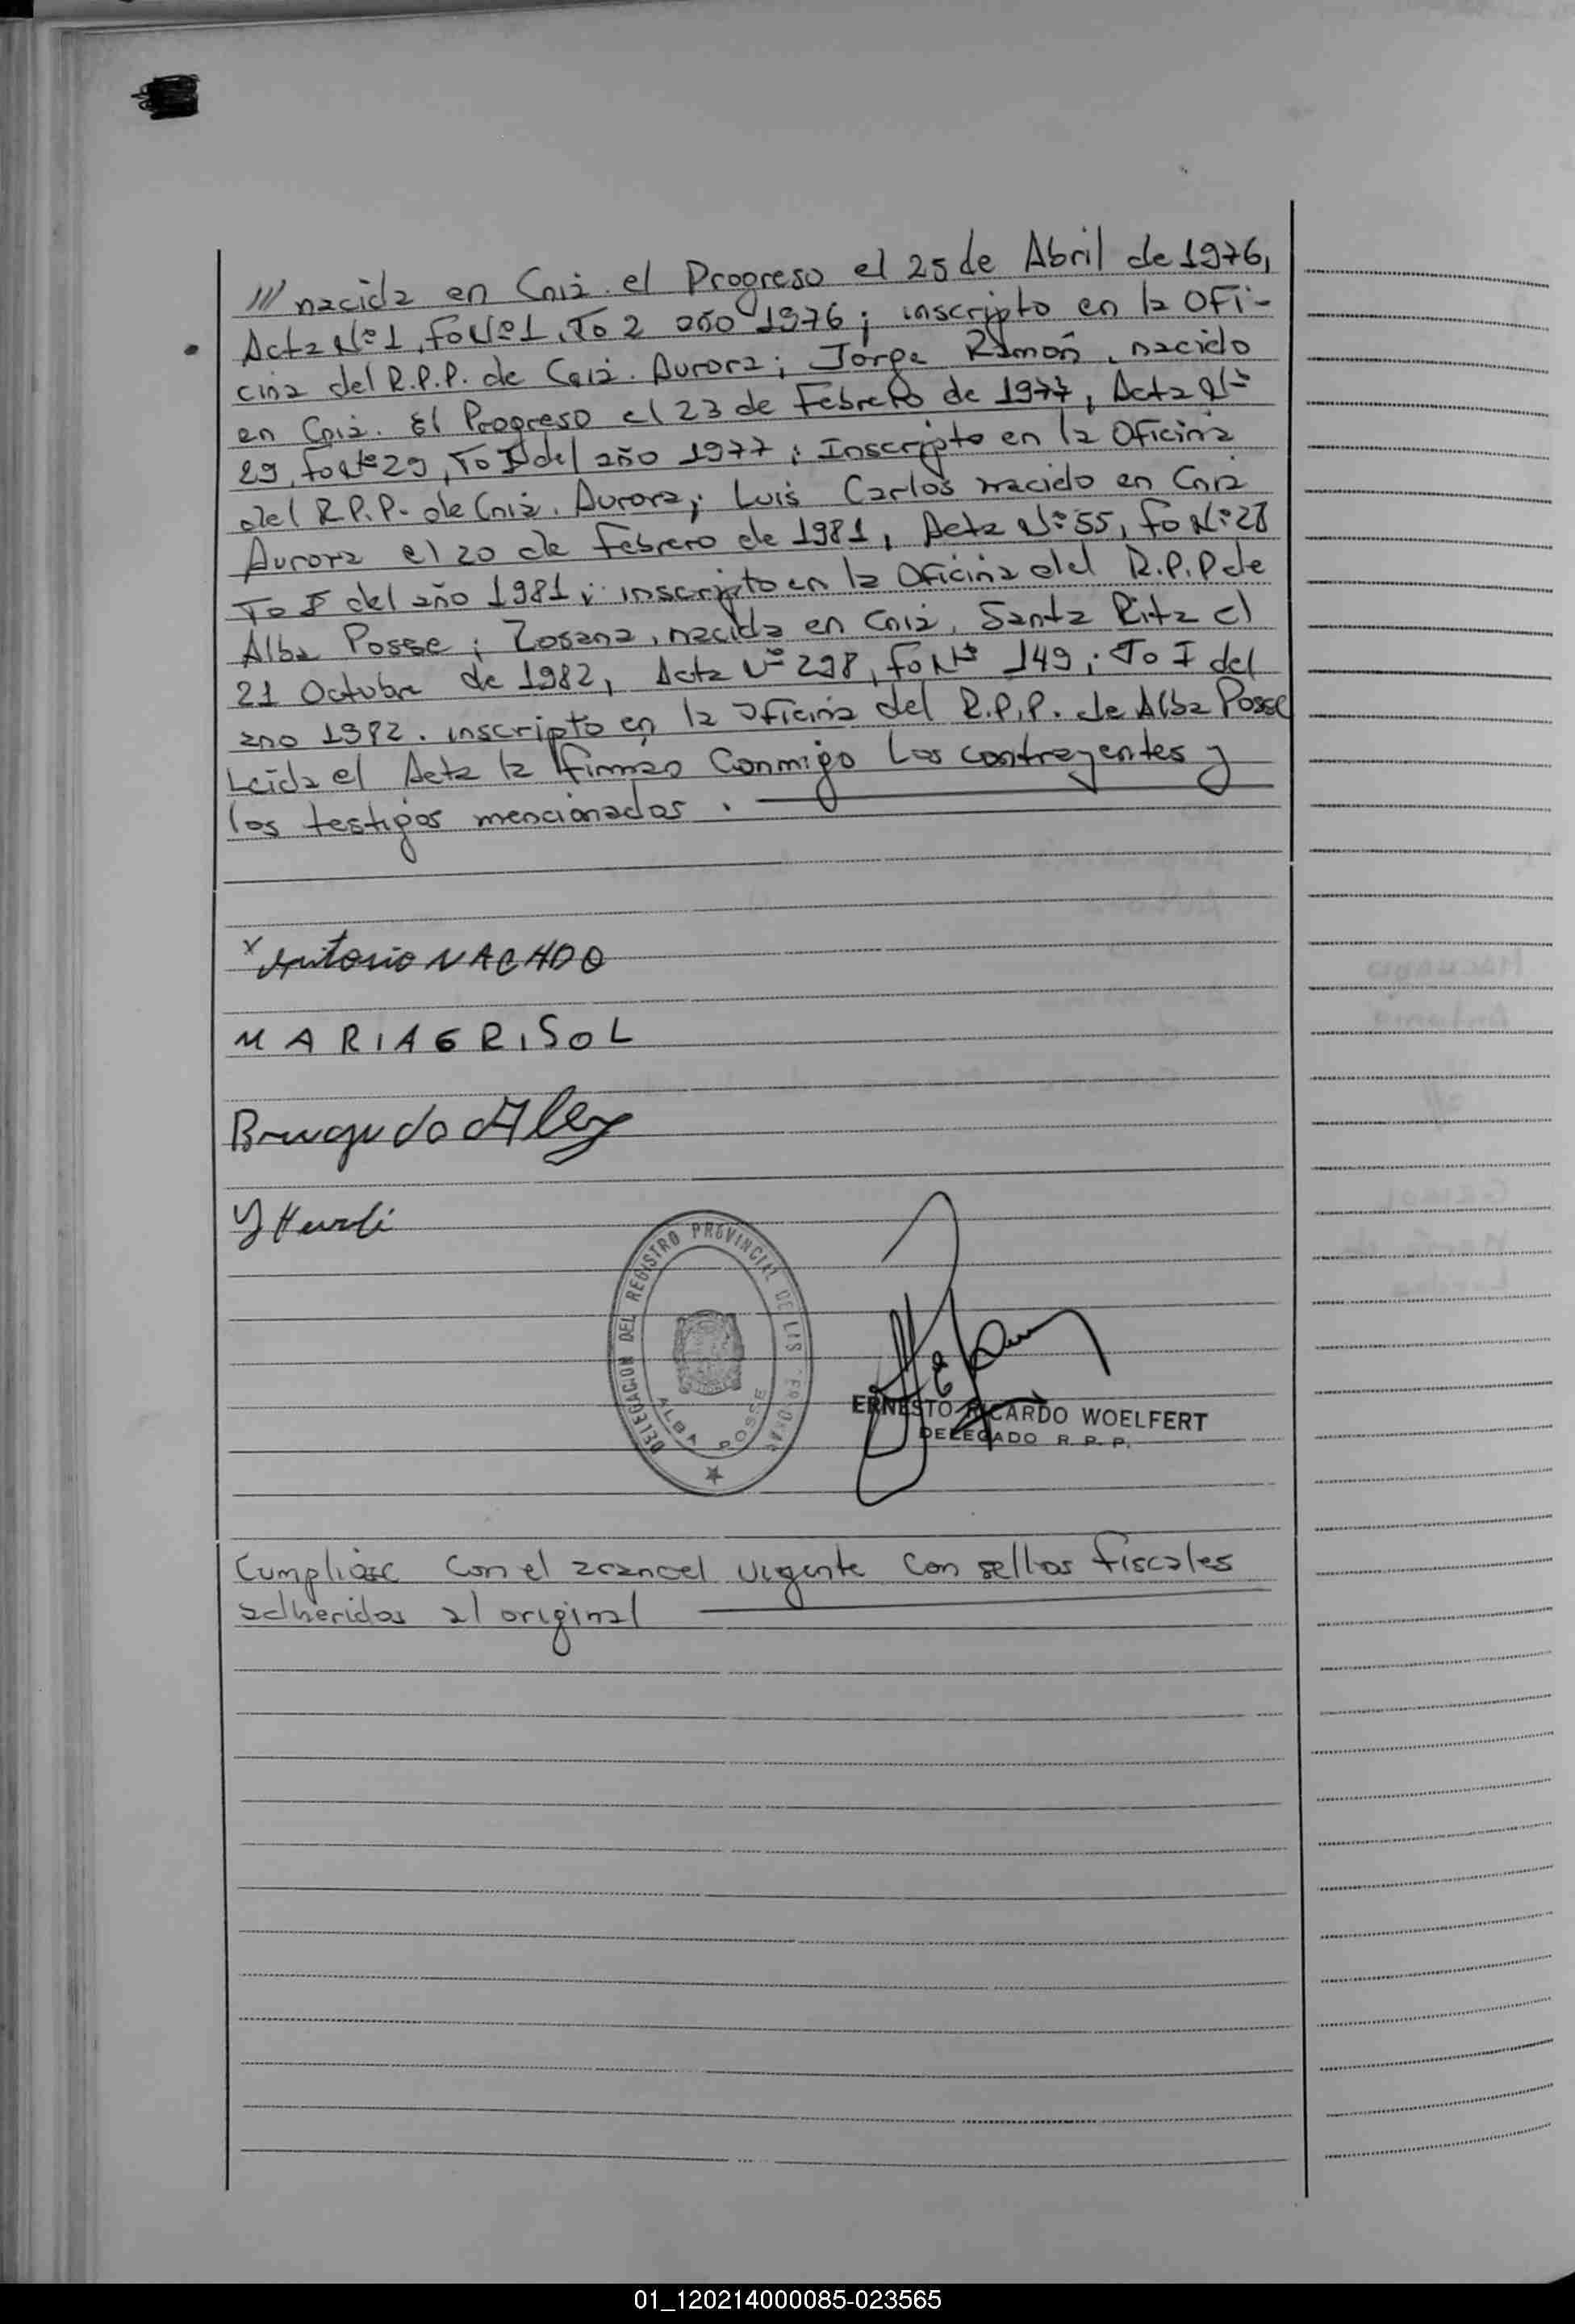 /// nacida en Cnia. el Progreso el 25 de Abril de 1976,
Acta Nº 1, Fo Nº 1, To 2 año 1976; inscripto en la Ofi-
cina del R.P.P. de Cnia. Aurora; Jorge Ramón, nacido
en Cnia. El Progreso el 23 de Febrero de 1977, Acta Nº
29, fo Nº 29, To I del año 1977; Inscripto en la Oficina
del R.P.P. de Cnia. Aurora; Luis Carlos nacido en Cnia
Aurora el 20 de febrero de 1981, Acta Nº 55, fo Nº 28
To I del año 1981; inscripto en la Oficina del R.P.P de
Alba Posse; Zosana, nacida en Cnia. Santa Rita el
21 Octubre de 1982, Acta Nº 298, fo Nº 149; To I del
ano 1982. inscripto en la oficina del R.P.P. de Alba Posse
Leida el Acta la firman Conmigo Los contrayentes y
los testigos mencionados.
x Antonio NACHDO
MARIAGRISOL
DELEGACION DEL REGISTRO PROVINCIAL DE LAS PERSONAS
ALBA POSSE
ERNESTO RICARDO WOELFERT
DELEGADO R. P. P.
Cumpliose con el arancel vigente con sellos fiscales
adheridos al original
01_120214000085-023565